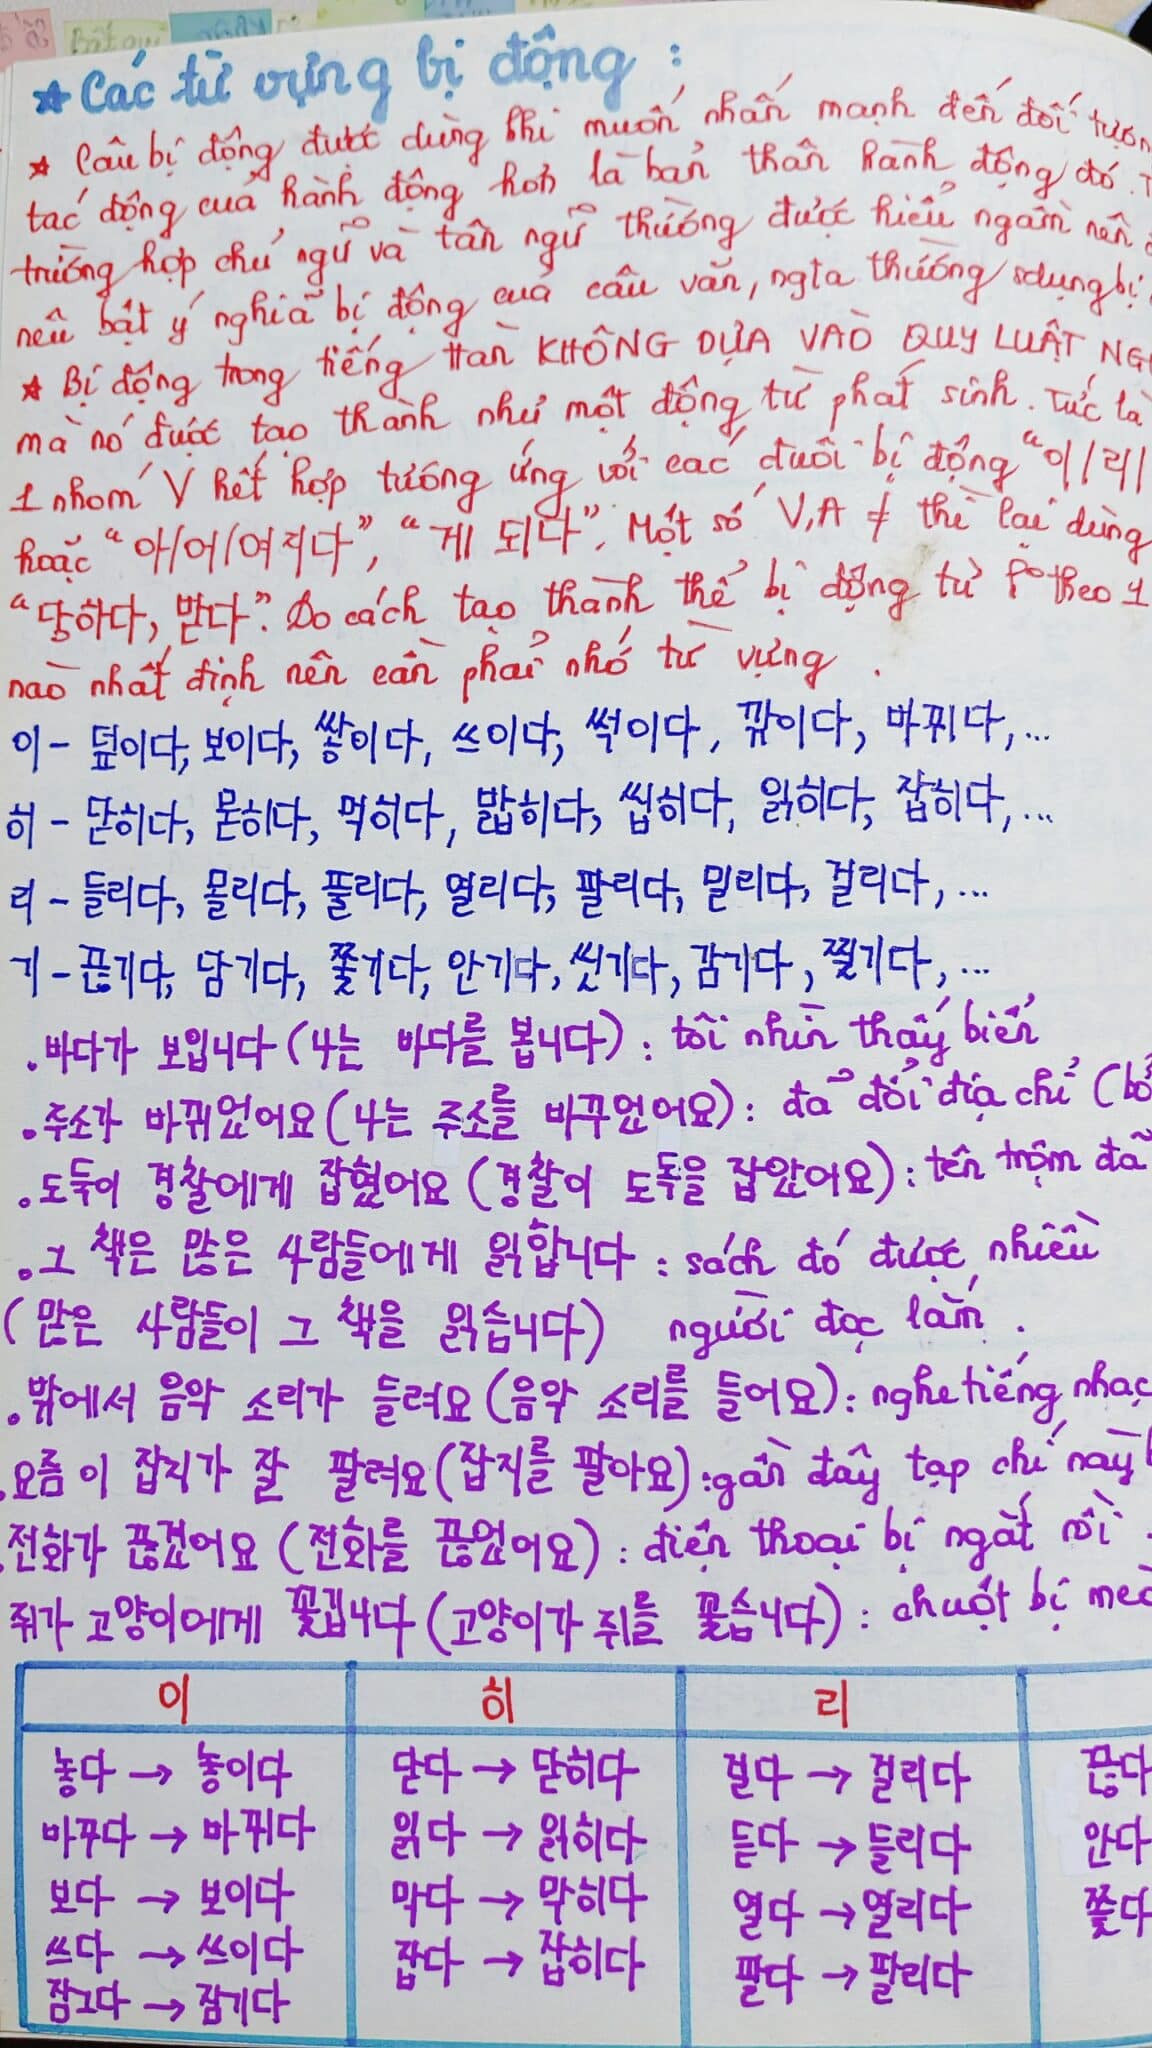 Các từ vựng bị động :
Câu bị động được dùng khi muốn nhấn mạnh đến đối tượn
tác động của hành động hơn là bản thân hành động đó.
trường hợp chủ ngữ và tân ngữ thường được hiểu ngầm nên
nêu bật ý nghĩa bị động của câu văn, ngta thường sdụng bị
Bị động trong tiếng Hàn KHÔNG DỰA VÀO QUY LUẬT NG
mà nó được tạo thành như một động từ phát sinh. Tức là
1 nhóm V kết hợp tương ứng với các đuôi bị động "이/리/
hoặc "아/어/여지다", "게 되다". Một số V, A ≠ thì lại dùng
"당하다, 받다". Do cách tạo thành thể bị động từ theo 1
nào nhất định nên cần phải nhớ từ vựng .
이 - 덮이다, 보이다, 쌓이다, 쓰이다, 썩이다, 깎이다, 바뀌다, ...
히 - 닫히다, 묻히다, 먹히다, 밟히다, 씹히다, 읽히다, 잡히다, ...
리 - 들리다, 몰리다, 풀리다, 열리다, 팔리다, 밀리다, 걸리다, ...
기 - 끊기다, 담기다, 쫓기다, 안기다, 씻기다, 감기다, 찢기다, ...
. 바다가 보입니다 (나는 바다를 봅니다) : tôi nhìn thấy biển
. 주소가 바뀌었어요 (나는 주소를 바꾸었어요) : đã đổi địa chỉ (bở
. 도둑이 경찰에게 잡혔어요 (경찰이 도둑을 잡았어요) : tên trộm đã
. 그 책은 많은 사람들에게 읽힙니다 : sách đó được nhiều
(많은 사람들이 그 책을 읽습니다) người đọc lắm .
. 밖에서 음악 소리가 들려요 (음악 소리를 들어요) : nghe tiếng nhạc
. 요즘 이 잡지가 잘 팔려요 (잡지를 팔아요) : gần đây tạp chí này
. 전화가 끊겼어요 (전화를 끊었어요) : điện thoại bị ngắt rồi .
쥐가 고양이에게 쫓깁니다 (고양이가 쥐를 쫓습니다) : chuột bị mèo
이 히 리
놓다 → 놓이다 닫다 → 닫히다 걸다 → 걸리다 끊다
바꾸다 → 바뀌다 읽다 → 읽히다 듣다 → 들리다 안다
보다 → 보이다 막다 → 막히다 열다 → 열리다 쫓다
쓰다 → 쓰이다 잡다 → 잡히다 팔다 → 팔리다
잠그다 → 잠기다